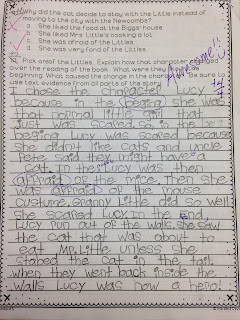 Why did the cat decide to stay with the Littles instead of
moving to the city with the Newcombs?
a. She liked the food at the Biggs' house.
b. She liked Mrs. Little's cooking a lot.
c. She was afraid of the Littles.
d. She was very fond of the Littles.
10. Pick one of the Littles. Explain how that character changed
over the reading of the book. What were they like in the
beginning. What caused the change in the character? Be sure to
use text evidence from all parts of the story.
Awesome!
+4
I chose the character Lucy
because in the begining she was
that normal little girl that
just was scared. In the
begining Lucy was scared because
she didn't like cats and uncle
Pete said they might have a
cat. In the Lucy was then
afraid of mice. Then she
was afraid of the mouse
custume. Granny Little did so well
she scared Lucy. In the end,
Lucy run out of the walls. She saw
the cat that was about to
eat Mr. Little unless she
stabed the cat in the tail.
when they went back inside the
walls Lucy was now a hero!